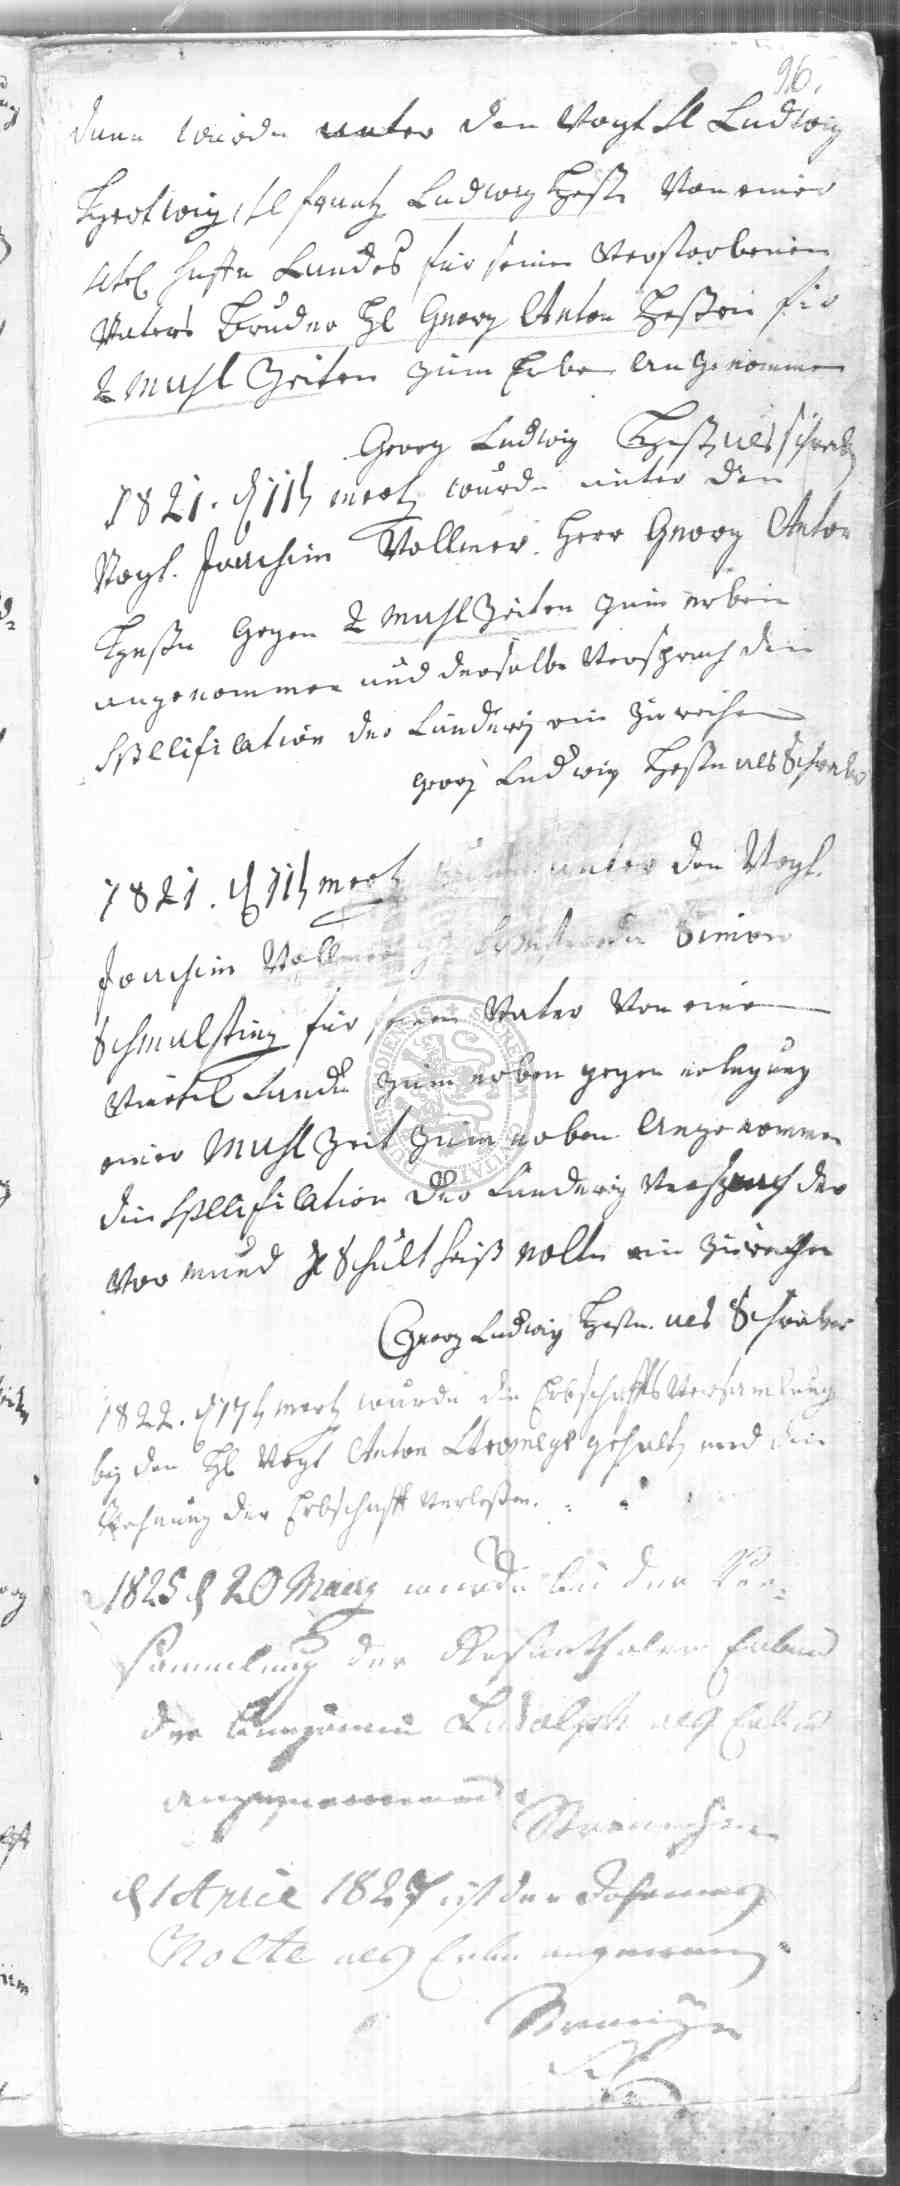 96.
dann wurde unter den Vogt H Ludwig
Hertwig, H frantz Ludwig Heße von einer
huffe Landes für seinen Verstorbenen
Vaters Bruder Hl Georg Anton Heßen für
2 Mahl Zeiten zum Erbe angenommen
Georg Ludwig Heße als schreiber
1821. d 11t mertz wurde unter den
Vogt. Joachim Vollmer. Herr Georg Anton
Heße Gegen 2 Mahlzeiten zum erben
angenommen und derselbe Versprach die
Spellification der Länderey ein zureichen
georg Ludwig Heße als Schreiber
1821. d 11t mertz unter den Vogt.
Joachim Vollmer Simon
Schmalsting für seinen Vater Von eine
Viertel Lande zum erben gegen erlegung
einer Mahlzeit zum erben Angenommen
die Spellification der Länderey Versprach der
Vormund H Schultheiß nolte ein zureichen
Georg Ludwig Heße. als Schreiber
1822. d 17t mertz wurde die Erbschaffts Versamlung
bey den Hl Vogt Anton gehalt, und die
Rechnung der Erbschafft verleßen.
1825 d 20 Maerz wurde bei der Ver-
sammlung der Erben
der Benjamin Ludolph als Erbe
angenommen
d 1 April 1827 ist der Johannes
Nolte als Erbe angenom.